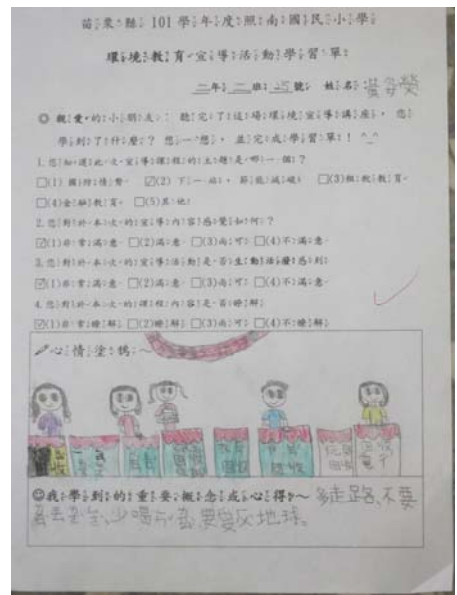 苗栗縣 101 學年度照南國民小學
環境教育宣導活動學習單
二年二班25號 姓名:黃
◎ 親愛的小朋友: 聽完了這場環境宣導講座, 您
學到了什麼? 想一想, 並完成學習單! ^_^
1. 您知道此次宣導課程的主題是哪一個?
□(1) 國防情勢 ☑(2) 下一站, 節能減碳 □(3)租稅教育
□(4)金融教育 □(5)其他
2. 您對於本次的宣導內容感覺如何?
☑(1)非常滿意 □(2)滿意 □(3)尚可 □(4)不滿意
3. 您對於本次的宣導活動是否生動活潑感到
☑(1)非常滿意 □(2)滿意 □(3)尚可 □(4)不滿意
4. 您對於本次的課程內容是否瞭解
☑(1)非常瞭解 □(2)瞭解 □(3)尚可 □(4)不瞭解
心情塗鴉~
☺我學到的重要概念或心得~ 多走路、不要
丟、少喝、要愛地球。